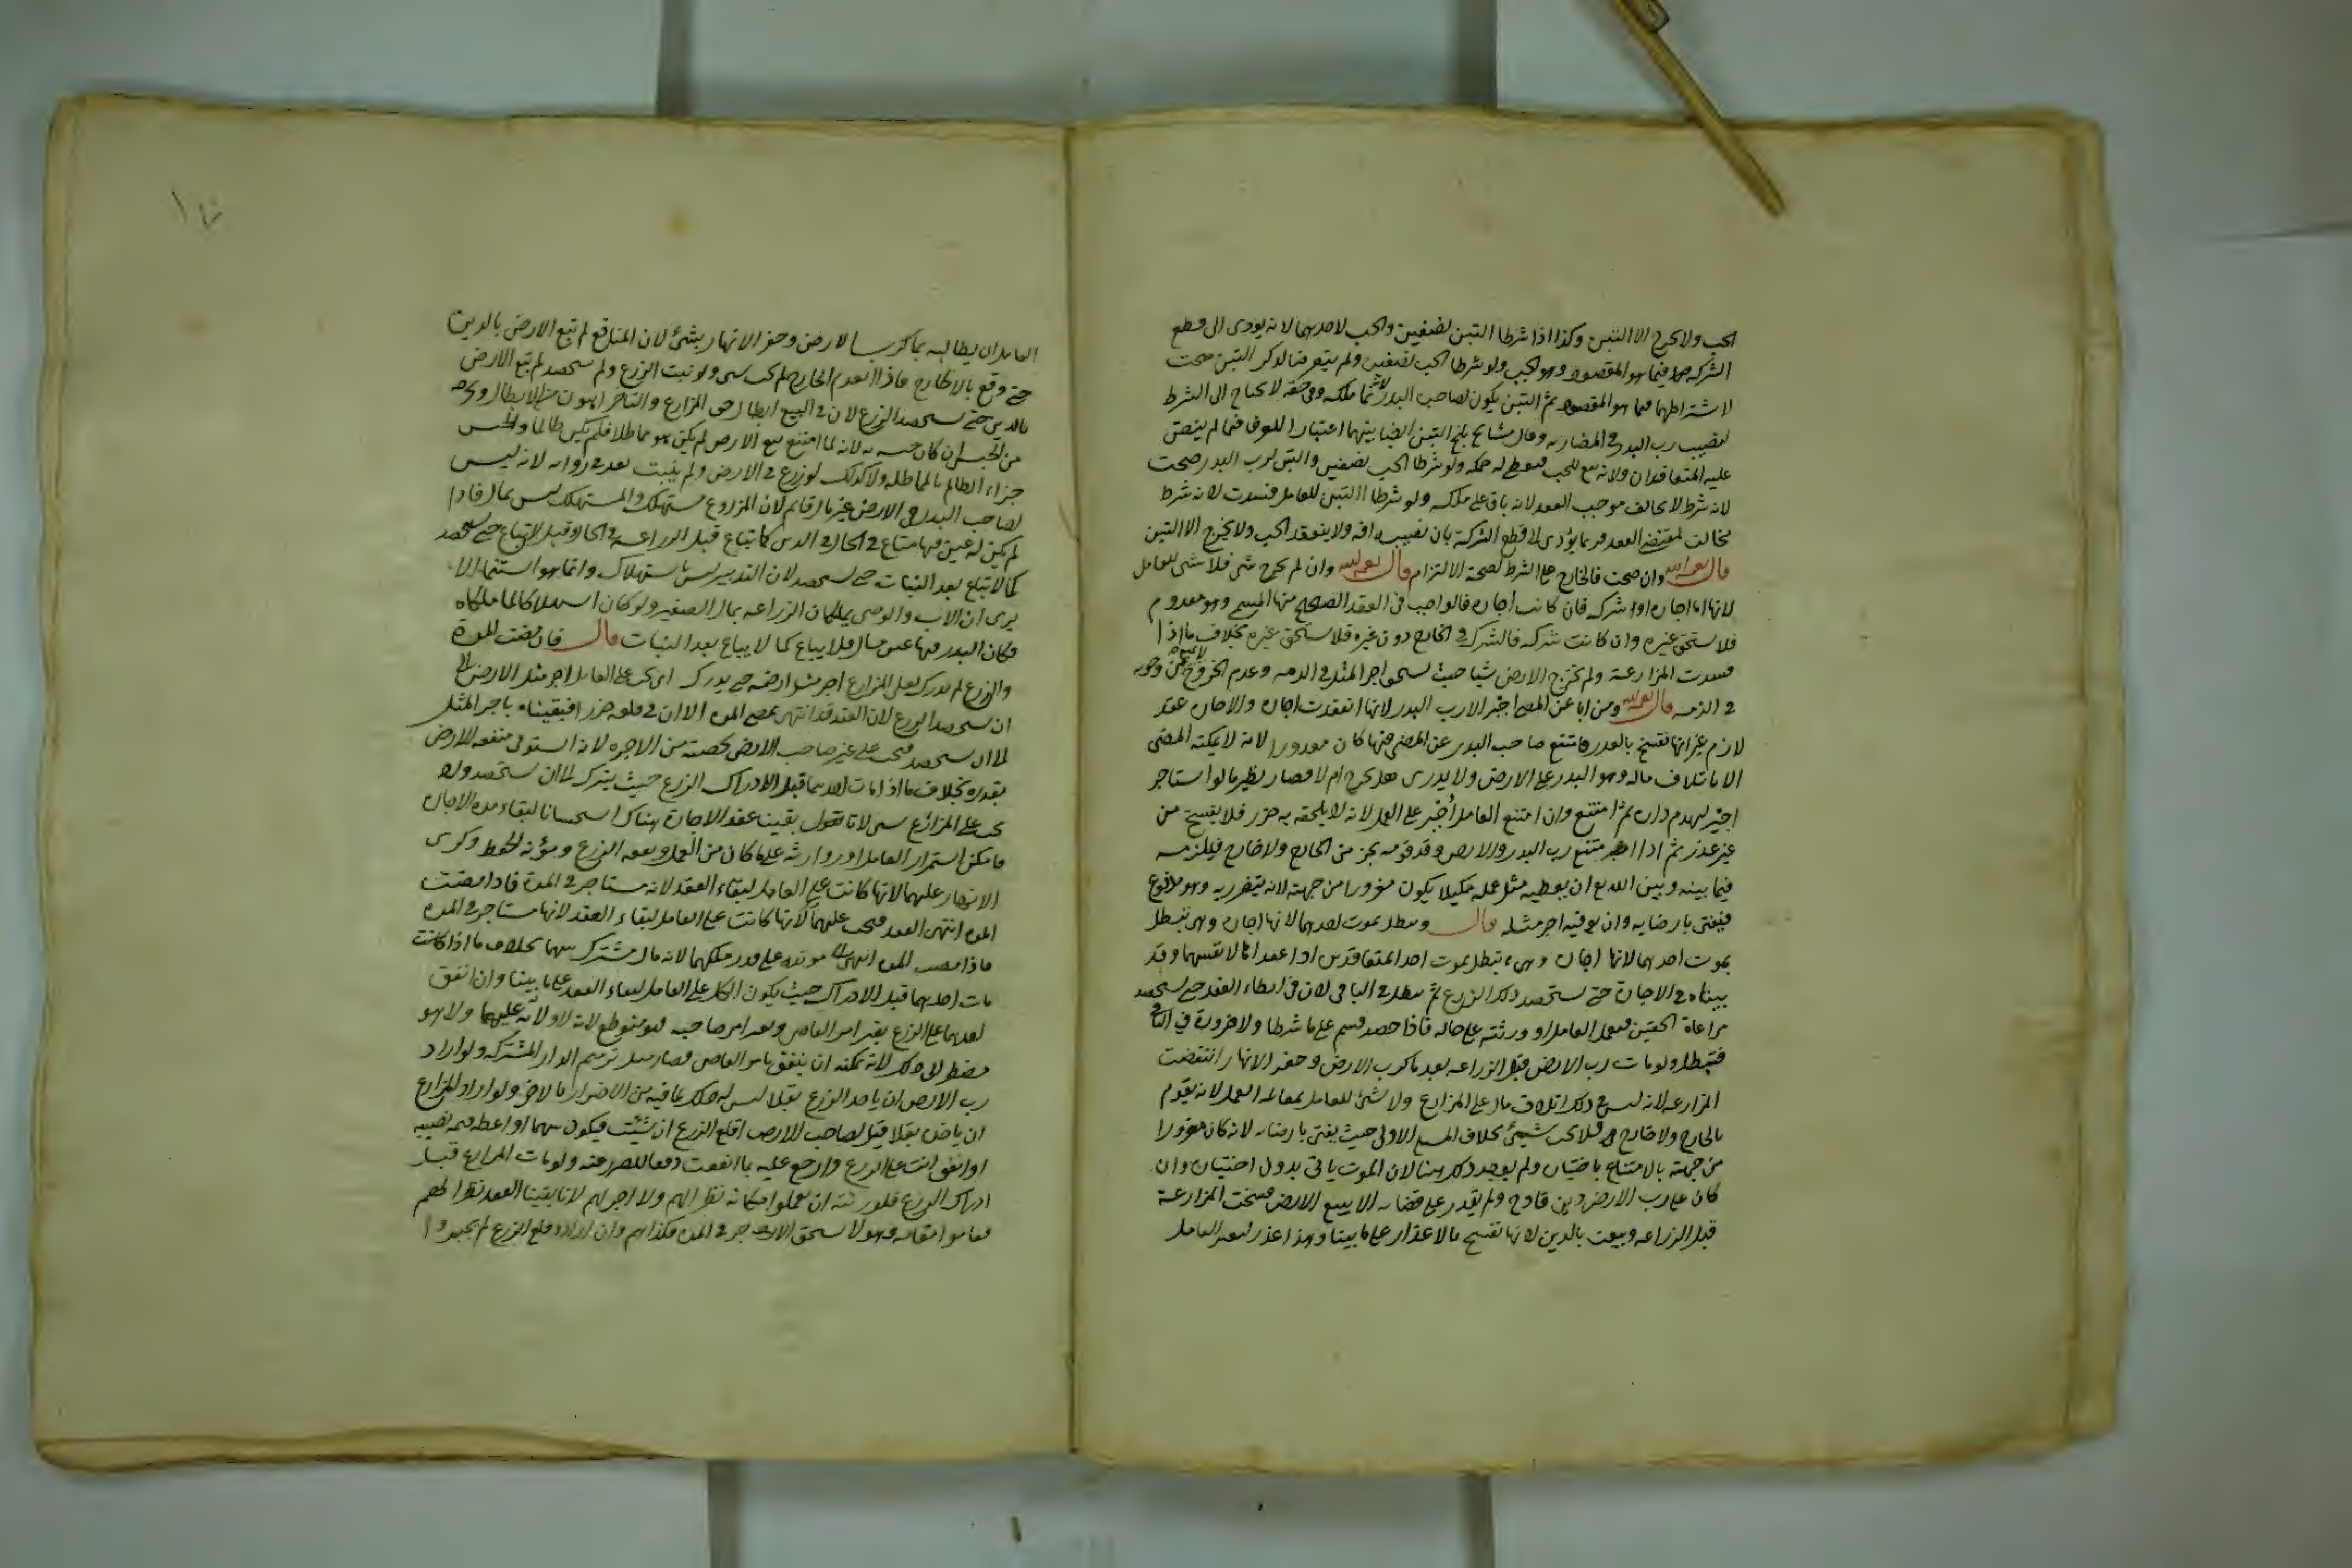 الحب ولا يخرج الا التبن وكذا اذا شرطا التبن نصفين والحب لاحدهما لانه يودى الى قطع
الشركه فيما هو المقصود وهو الحب ولو شرطا الحب نصفين ولم يتعرضا لذكر التبن صحت
لاشتراطهما فيما هو المقصود ثم التبن يكون لصاحب البدر لانه نما ملكه وفى حقه لا يحتاج الى الشرط
وقال مشايخ بلخ التبن ايضا بينهما اعتبارا للعرف فيما لم ينص
عليه المتعاقدان ولانه تبع للحب ولو شرطا الحب نصفين والتبن لرب البدر صحت
لانه شرط لا يخالف موجب العقد لانه باق على ملكه ولو شرطا التبن للعامل فسدت لانه شرط
مخالف لمقتضى العقد فربما يؤدى لا قطع الشركة بان تصيبه افه ولا ينعقد الحب ولا يخرج الا التبن
قال وان صحت فالخارج على الشرط لصحة الالتزام قال وان لم يخرج شى فلا شى للعامل
لانها اما اجاره او شركه فان كانت اجاره فالواجب فى العقد الصحيح منها المسمى وهو معدوم
فلا يستحق غيره وان كانت شركه فالشركة فى الخارج دون غيره فلا يستحق غيره بخلاف ما اذا
فسدت المزارعة ولم تخرج الارض شيا حيث يستحق اجر المثل فى الذمه وعدم الخروج لا يمنع من وجوبه
فى الذمه قال ومن ابا عن المضى اجبر الا رب البدر لانها انعقدت اجاره والاجاره عقد
لازم غير انها تفسخ بالعذر فامتنع صاحب البدر عن المضى فيها كان معذورا لانه لا يمكنه المضى
الا باتلاف ماله وهو البدر على الارض ولا يدرى هل يخرج ام لا فصار نظير ما لو استاجر
اجير ليهدم داره ثم امتنع وان امتنع العامل اجبر على العمل لانه لا يلحقه به ضرر فلا يفسخ من
غير عذر ثم اذا امتنع رب البدر والارض وقد قومه بجز من الخارج ولا خارج فيلزمه
فيما بينه وبين الله تع ان يعطيه مثل عمله كيلا يكون مغرورا من جهته لانه يتضرر به وهو مدفوع
فيفتى بارضايه وان يوفيه اجر مثله قال وتبطل بموت احدهما لانها اجاره وهى تبطل
بموت احدهما لانها اجاره وهى تبطل بموت احد المتعاقدين اذا عقداها لانفسهما وقد
بيناه فى الاجارة حتى يستحصد ذلك الزرع ثم تبطل فى الباقى لان فى ابقاء العقد حتى يستحصد
مراعاة الحقين فيعمل العامل او ورثته على حاله فاذا حصد قسم على ما شرطا ولا ضرورة فى الباقى
فتبطل ولو مات رب الارض قبل الزراعه بعد ما كرب الارض وحفر الانهار انتقضت
المزارعه لانه ليس فى ذلك اتلاف مال على المزارع ولا شئ للعامل بمقابلة العمل لانه يقوم
بالخارج ولا خارج فلا يجب شيئ بخلاف المسئلة الاولى حيث يفتى بارضايه لانه كان مغرورا
من جهته بالامتناع باختياره ولم يوجد ذلك هنا لان الموت ياتى بدون اختياره وان
كان على رب الارض دين فادح ولم يقدر على قضايه الا ببيع الارض فسخت المزارعة
قبل الزراعه وبيعت بالدين لانها تفسخ بالاعذار على ما بينا وهذا عذر ليس للعامل
العامل ان يطالبه بما كرب الارض وحفر الانهار بشئ لان المنافع لم تبع الارض بالدين
لم يجب شى ولو نبت الزرع ولم يستحصد لم تبع الارض
بالدين حتى يستحصد الزرع لان فى البيع ابطال حق المزارع والتاخير اهون من الابطال ويخرجه
من الحبس ان كان حبسه به لانه لما امتنع بيع الارض لم يكن هو مماطلا فلم يكن ظالما والحبس
جزاء الظالم بالمماطله ولا كذلك لو زرع فى الارض ولم ينبت بعد فى روايه لانه ليس
لصاحب البدر فى الارض عين مال قائم لان المزروع مستهلك والمستهلك ليس بمال فاذا
لم يكن له عين فيها تباع فى الحال فى الدين كما تباع قبل الزراعه
كما لا تباع بعد النبات حتى يستحصد لان التبدير ليس باستهلاك وانما هو استنما الا
يرى ان الاب والوصى يملكان الزراعه بمال الصغير ولو كان استهلاكا لما ملكاه
فكان البدر فيها عين مال فلا يباع كما لا يباع بعد النبات قال فان مضت المدة
والزرع لم يدرك فعلى المزارع اجر مثل ارضه حتى يدرك اى يجب على العامل اجر مثل الارض الى
ان يستحصد الزرع لان العقد قد انتهى بمضى المده الا ان فى قلعه ضررا فبقيناه باجر المثل
الى ان يستحصد فيجب على غير صاحب الارض بحصته من الاجره لانه استوفى منفعه الارض
بقدره بخلاف ما اذا مات احدهما قبل ادراك الزرع حيث يترك الى ان يستحصد ولا
يجب على المزارع شى لانا نقول بقينا عقد الاجارة هناك استحسانا لبقاء مده الاجاره
فامكن استمرار العامل او وارثه على ما كان من العمل ونفقه الزرع ومؤنه الحفظ وكرى
الانهار عليهما لانها كانت على العامل لبقاء العقد لانه مستاجر فى المدة فاذا مضت
المده انتهى العقد فتجب عليهما لانها كانت على العامل لبقاء العقد لانها مستاجر فى المده
فاذا مضت المده انتهى مونته على قدر ملكهما لانه مال مشترك بينهما بخلاف ما اذا كانت
مات احدهما قبل الادراك حيث يكون الكل على العامل لبقاء العقد على ما بينا وان انفق
احدهما على الزرع بغير امر القاضى وبغير امر صاحبه فهو متطوع لانه لا ولاية عليهما ولا هو
مضطر الى ذلك لانه يمكنه ان ينفق بامر القاضى فصار مثل ترميم الدار المشتركه ولو اراد
رب الارض ان ياخذ الزرع بقلا ليس له ذلك لما فيه من الاضرار بالاخر ولو اراد المزارع
ان ياخذه بقلا قيل لصاحب الارض اقلع الزرع ان شئت فيكون بينهما او اعطه قيمه نصيبه
او انفق انت على الزرع وارجع عليه بما انفقت دفعا للضرر عنه ولو مات المزارع قبل
ادراك الزرع فلورثته ان يعملوا مكانه نظرا لهم ولا اجر لهم لانا بقينا العقد نظرا لهم
فقاموا مقامه وهو لا يستحق الاجر فى المده فكذا هم وان ارادوا قلع الزرع لم يجبروا